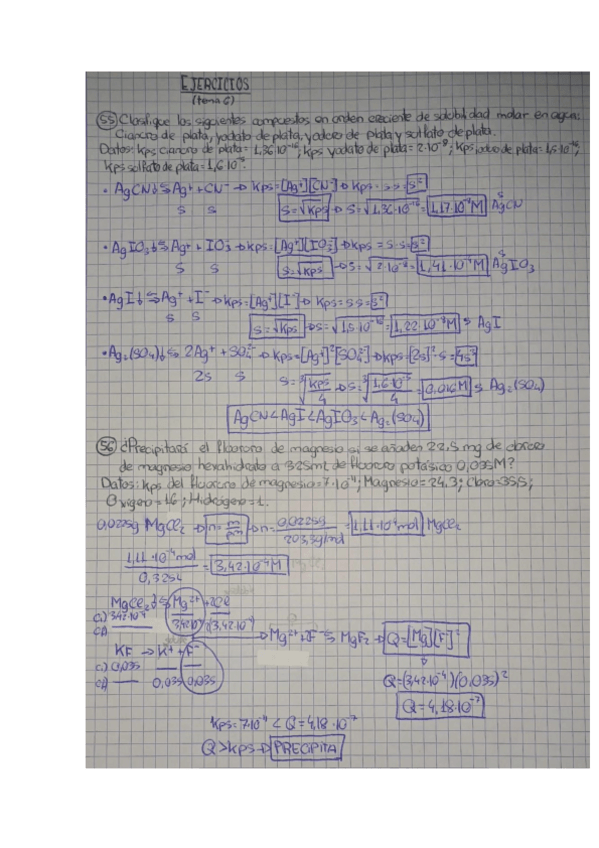 EJERCICIOS
(tema 6)
55) Clasifique los siguientes compuestos en orden creciente de solubilidad molar en agua:
Cianuro de plata, yodato de plata, yoduro de plata y sulfato de plata.
Datos: Kps cianuro de plata = 1,36·10⁻¹⁶; Kps yodato de plata = 2·10⁻⁸; Kps yoduro de plata = 1,5·10⁻¹⁶;
Kps sulfato de plata = 1,6·10⁻⁵.
• AgCN↓ ⇆ Ag⁺ + CN⁻ → Kps = [Ag⁺][CN⁻] → Kps = s·s = s²
s s
s = √Kps → s = √1,36·10⁻¹⁶ = 1,17·10⁻⁸ M s AgCN
• AgIO₃↓ ⇆ Ag⁺ + IO₃⁻ → Kps = [Ag⁺][IO₃⁻] → Kps = s·s = s²
s s
s = √Kps → s = √2·10⁻⁸ = 1,41·10⁻⁴ M s AgIO₃
• AgI↓ ⇆ Ag⁺ + I⁻ → Kps = [Ag⁺][I⁻] → Kps = s·s = s²
s s
s = √Kps → s = √1,5·10⁻¹⁶ = 1,22·10⁻⁸ M s AgI
• Ag₂(SO₄)↓ ⇆ 2Ag⁺ + SO₄²⁻ → Kps = [Ag⁺]²[SO₄²⁻] → Kps = [2s]²·s = 4s³
2s s
s = ∛(Kps/4) → s = ∛(1,6·10⁻⁵/4) = 0,016 M s Ag₂(SO₄)
AgCN < AgI < AgIO₃ < Ag₂(SO₄)
56) ¿Precipitará el fluoruro de magnesio si se añaden 22,5 mg de cloruro
de magnesio hexahidratado a 325 ml de fluoruro potásico 0,035 M?
Datos: Kps del fluoruro de magnesio = 7·10⁻⁹; Magnesio = 24,3; Cloro = 35,5;
Oxígeno = 16; Hidrógeno = 1.
0,0225g MgCl₂ → n = m/Pm → n = 0,0225g / 203,3g/mol = 1,11·10⁻⁴ mol MgCl₂
1,11·10⁻⁴ mol / 0,325L = 3,42·10⁻⁴ M
MgCl₂↓ ⇆ Mg²⁺ + 2Cl⁻
c.i) 3,42·10⁻⁴
cf) 3,42·10⁻⁴ 2(3,42·10⁻⁴
→ Mg²⁺ + 2F⁻ ⇆ MgF₂ → Q = [Mg][F]²
KF → K⁺ + F⁻
c.i) 0,035
cf) 0,035 0,035
Q = (3,42·10⁻⁴)(0,035)²
Q = 4,18·10⁻⁷
Kps = 7·10⁻⁹ < Q = 4,18·10⁻⁷
Q > Kps → PRECIPITA